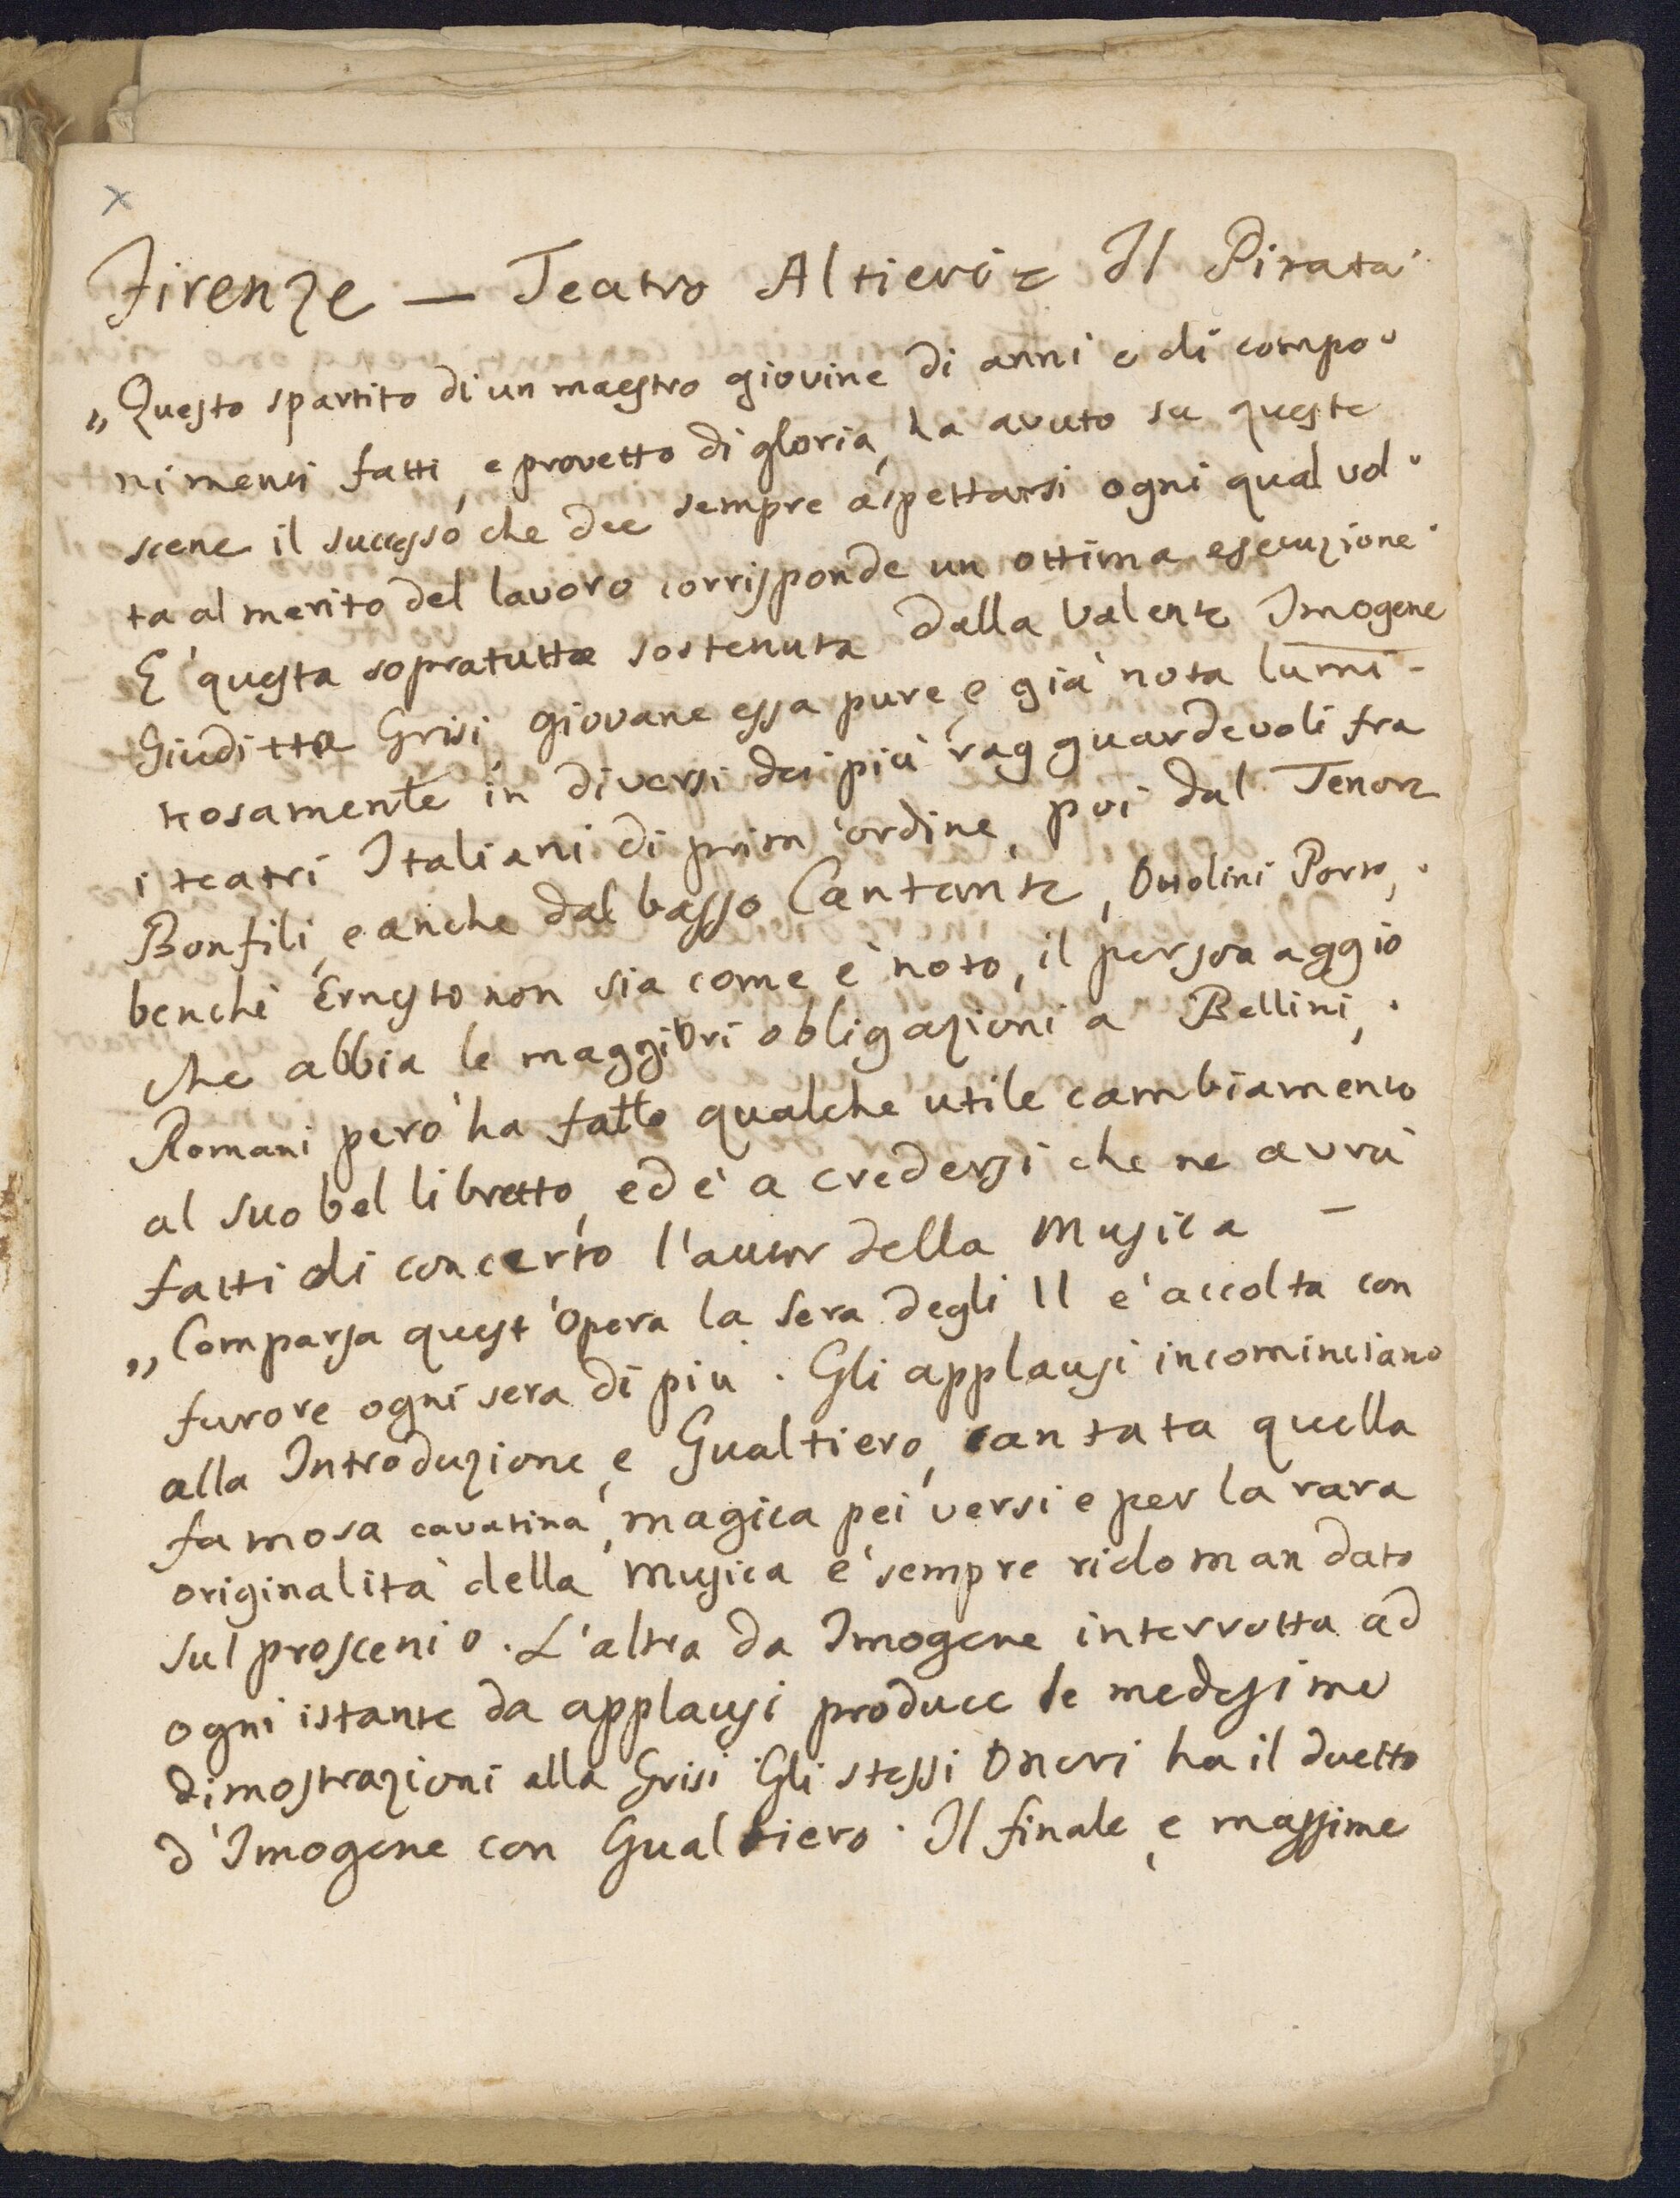 x
Firenze — Teatro Altieri = Il Pirata
„ Questo spartito di un maestro giovine di anni e di compo-
nimenti fatti, e provetto di gloria, ha avuto su queste
scene il successo che dee sempre aspettarsi ogni qual vol-
ta al merito del lavoro corrisponde un ottima esecuzione.
E' questa sopratutto sostenuta dalla Valente Imogene
Giuditta Grisi, giovane essa pure e già nota lumi-
nosamente in diversi dei più ragguardevoli fra
i teatri Italiani di prim'ordine, poi dal Tenore
Bonfili, e anche dal basso Cantante, Ottolini Porto,
benchè Ernesto non sia come e' noto, il personaggio
che abbia le maggiori obligazioni a Bellini,.
Romani però ha fatto qualche utile cambiamento
al suo bel libretto, ed e' a credersi che ne avrà
fatti di concerto l'autor della Musica —
„ Comparsa quest'Opera la sera degli 11 e' accolta con
furore ogni sera di più. Gli applausi incominciano
alla Introduzione, e Gualtiero, cantata quella
famosa cavatina, magica pei versi e per la rara
originalità della Musica e' sempre ridomandato
sul proscenio. L'altra da Imogene interrotta ad
ogni istante da applausi produce le medesime
dimostrazioni alla Grisi Gli stessi Onori ha il duetto
d'Imogene con Gualtiero. Il finale, e massime